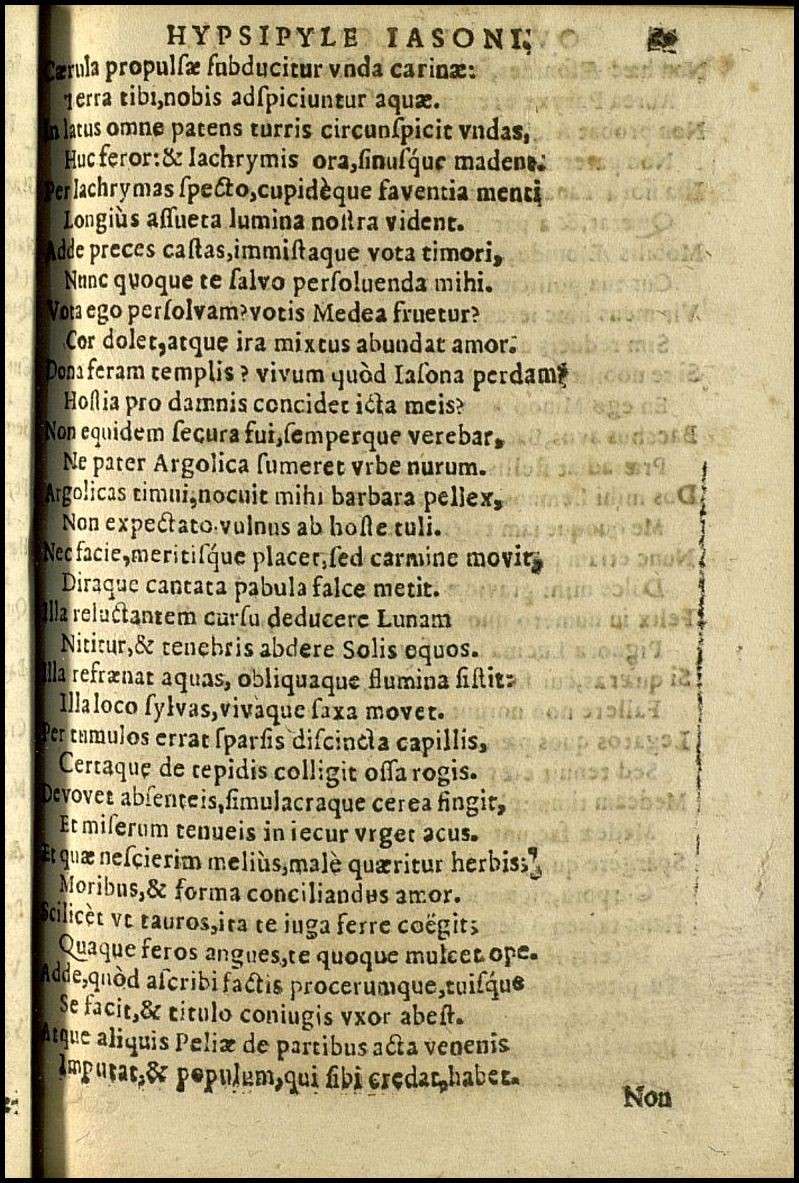 HYPSIPYLE IASONI.
Cærula propulſæ ſubducitur vnda carinæ:
Terra tibi,nobis adſpiciuntur aquæ.
In latus omne patens turris circunſpicit vndas,
Huc feror:& lachrymis ora,ſinuſq́ue madent.
Per lachrymas ſpecto,cupidèque faventia menti
Longiùs aſſueta lumina noſtra vident.
Adde preces caſtas,immiſtaque vota timori,
Nunc quoque te ſalvo perſoluenda mihi.
Vota ego perſolvam?votis Medea fruetur?
Cor dolet,atque ira mixtus abundat amor.
Dona feram templis? vivum quòd Iaſona perdam?
Hoſtia pro damnis concidet icta meis?
Non equidem ſecura fui,ſemperque verebar,
Ne pater Argolica ſumeret vrbe nurum.
Argolicas timui,nocuit mihi barbara pellex,
Non expectato vulnus ab hoſte tuli.
Nec facie,meritiſq́ue placet,ſed carmine movit,
Diraque cantata pabula falce metit.
Illa reluctantem curſu deducere Lunam
Nititur,& tenebris abdere Solis equos.
Illa refrænat aquas, obliquaque flumina ſiſtit:
Illa loco ſylvas,vivàque ſaxa movet.
Per tumulos errat ſparſis diſcincta capillis,
Certaque de tepidis colligit oſſa rogis.
Devovet abſenteis,ſimulacraque cerea fingit,
Et miſerum tenueis in iecur vrget acus.
Et quæ neſcierim meliùs,malè quæritur herbis;
Moribus,& forma conciliandus amor.
Scilicèt vt tauros,ita te iuga ferre coëgit;
Quaque feros angues,te quoque mulcet ope.
Adde,quòd aſcribi factis procerumque,tuiſq́ue
Se facit,& titulo coniugis vxor abeſt.
Atque aliquis Peliæ de partibus acta venenis
Imputat,& populum,qui ſibi credat,habet.
Non